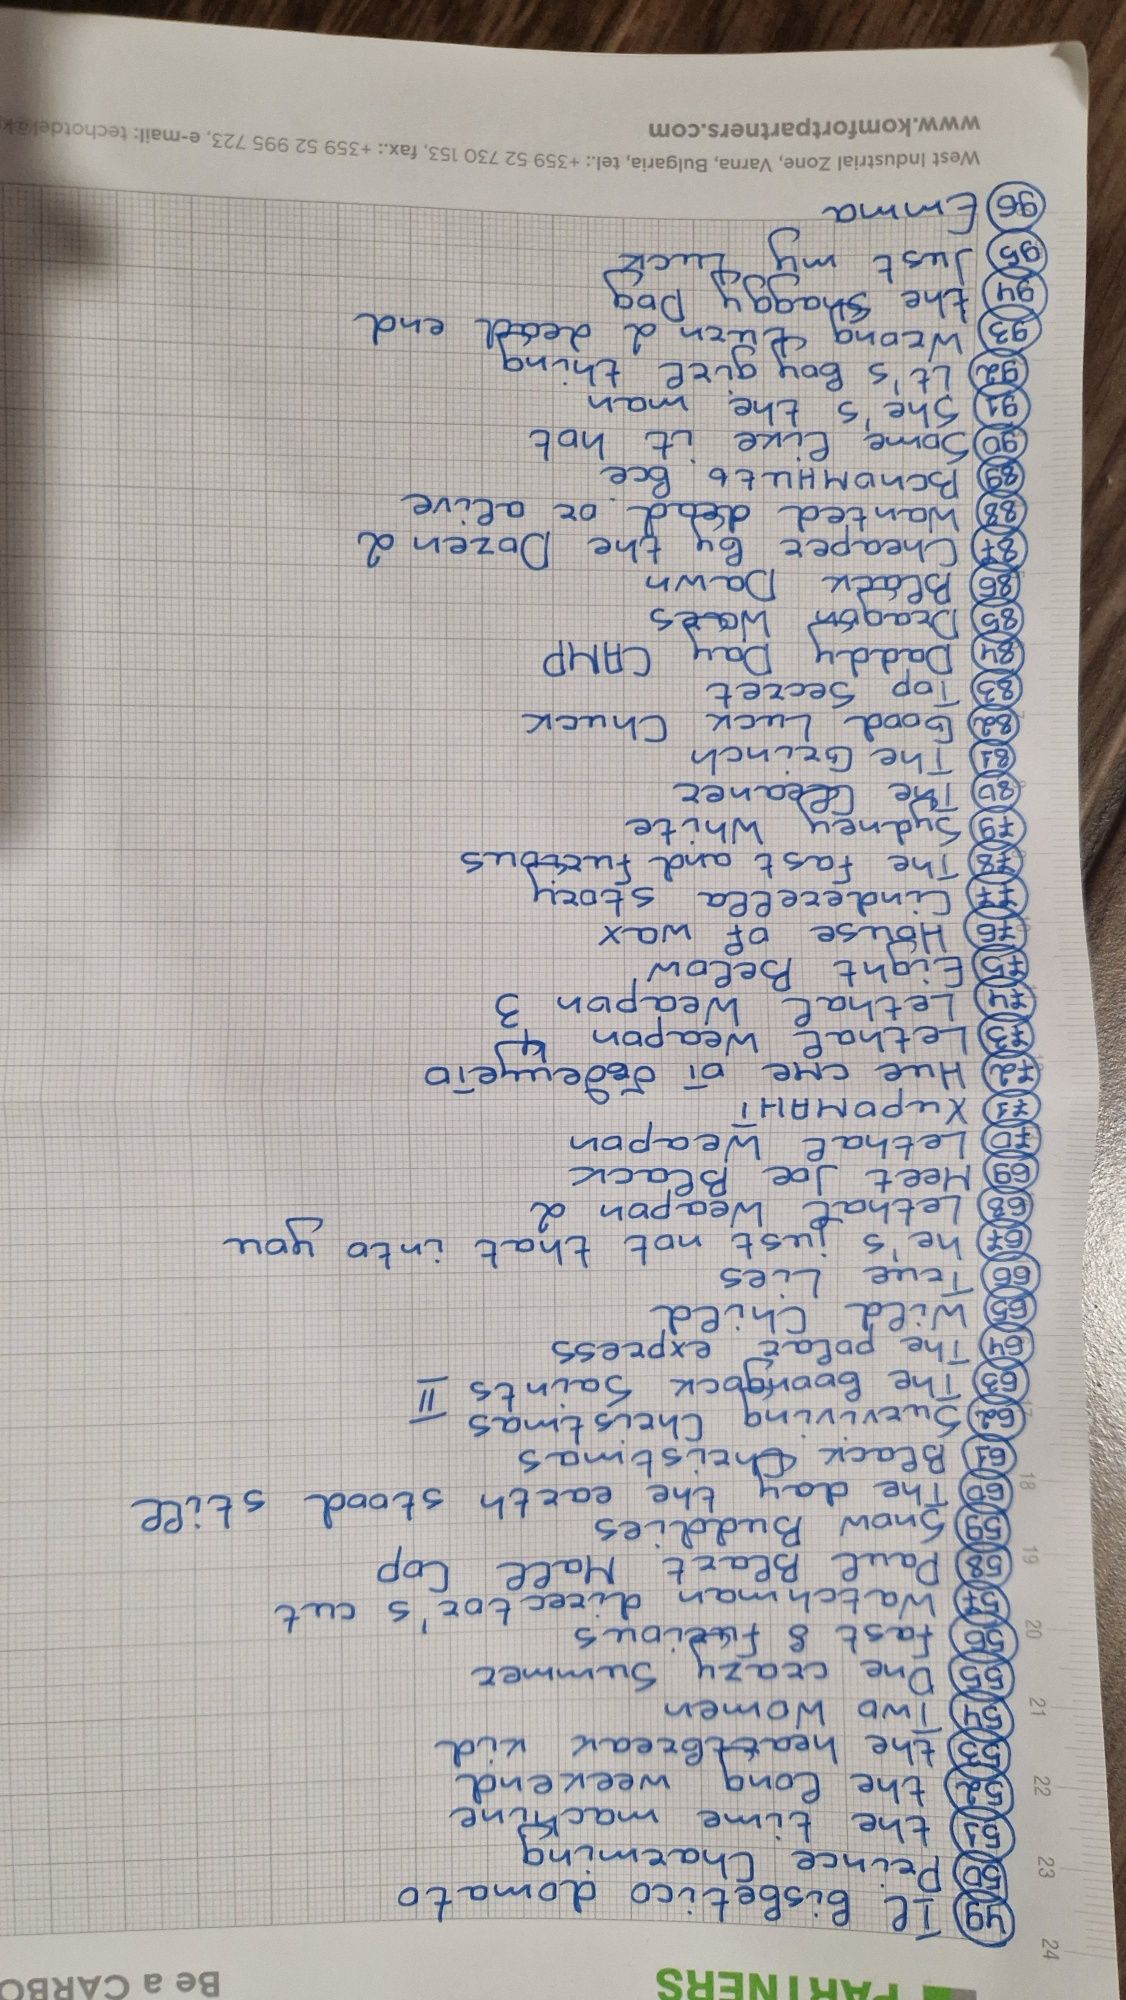 PARTNERS
Be a CARBO
24
23
22
21
20
19
18
17
49 Il bisbetico domato
50 Prince Charming
51 the time machine
52 the long weekend
53 the heartbreak kid
54 Two Women
55 One crazy Summer
56 fast & furious
57 Watchman director's cut
58 Paul Blart Mall Cop
59 Snow Buddies
60 The day the earth stood still
61 Black Christmas
62 Surviving Christmas
63 The Boongock Saints II
64 The polar express
65 Wild Child
66 True Lies
67 he's just not that into you
68 Lethal Weapon 2
69 Meet Joe Black
70 Lethal Weapon
71 Хиромант
72 Ние сме от бъдещето
73 Lethal Weapon 4
74 Lethal Weapon 3
75 Eight Below
76 House of wax
77 Cinderella story
78 The fast and furious
79 Sydney White
80 The Cleaner
81 The Grinch
82 Good Luck Chuck
83 Top Secret
84 Daddy Day CAMP
85 Dragon Wars
86 Black Dawn
87 Cheaper by the Dozen 2
88 Wanted dead or alive
89 Вспомнить все
90 Some like it hot
91 She's the man
92 it's boy girl thing
93 Wrong turn 2 dead end
94 the Shaggy Dog
95 Just my Luck
96 Emma
West Industrial Zone, Varna, Bulgaria, tel.: +359 52 730 153, fax.: +359 52 995 723, e-mail:
www.komfortpartners.com